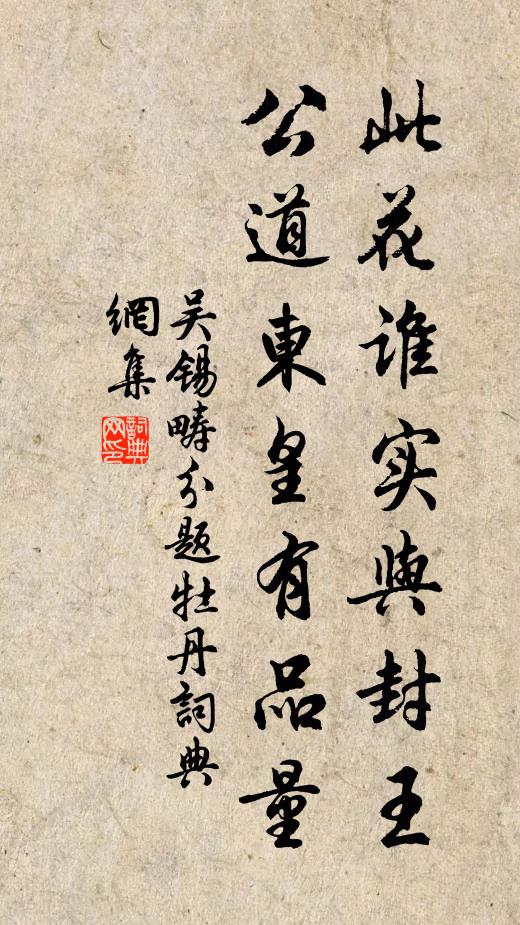 此花谁实與封王
公道東皇有品量
吴锡畴分题牡丹詞典
網集
詞典
网印